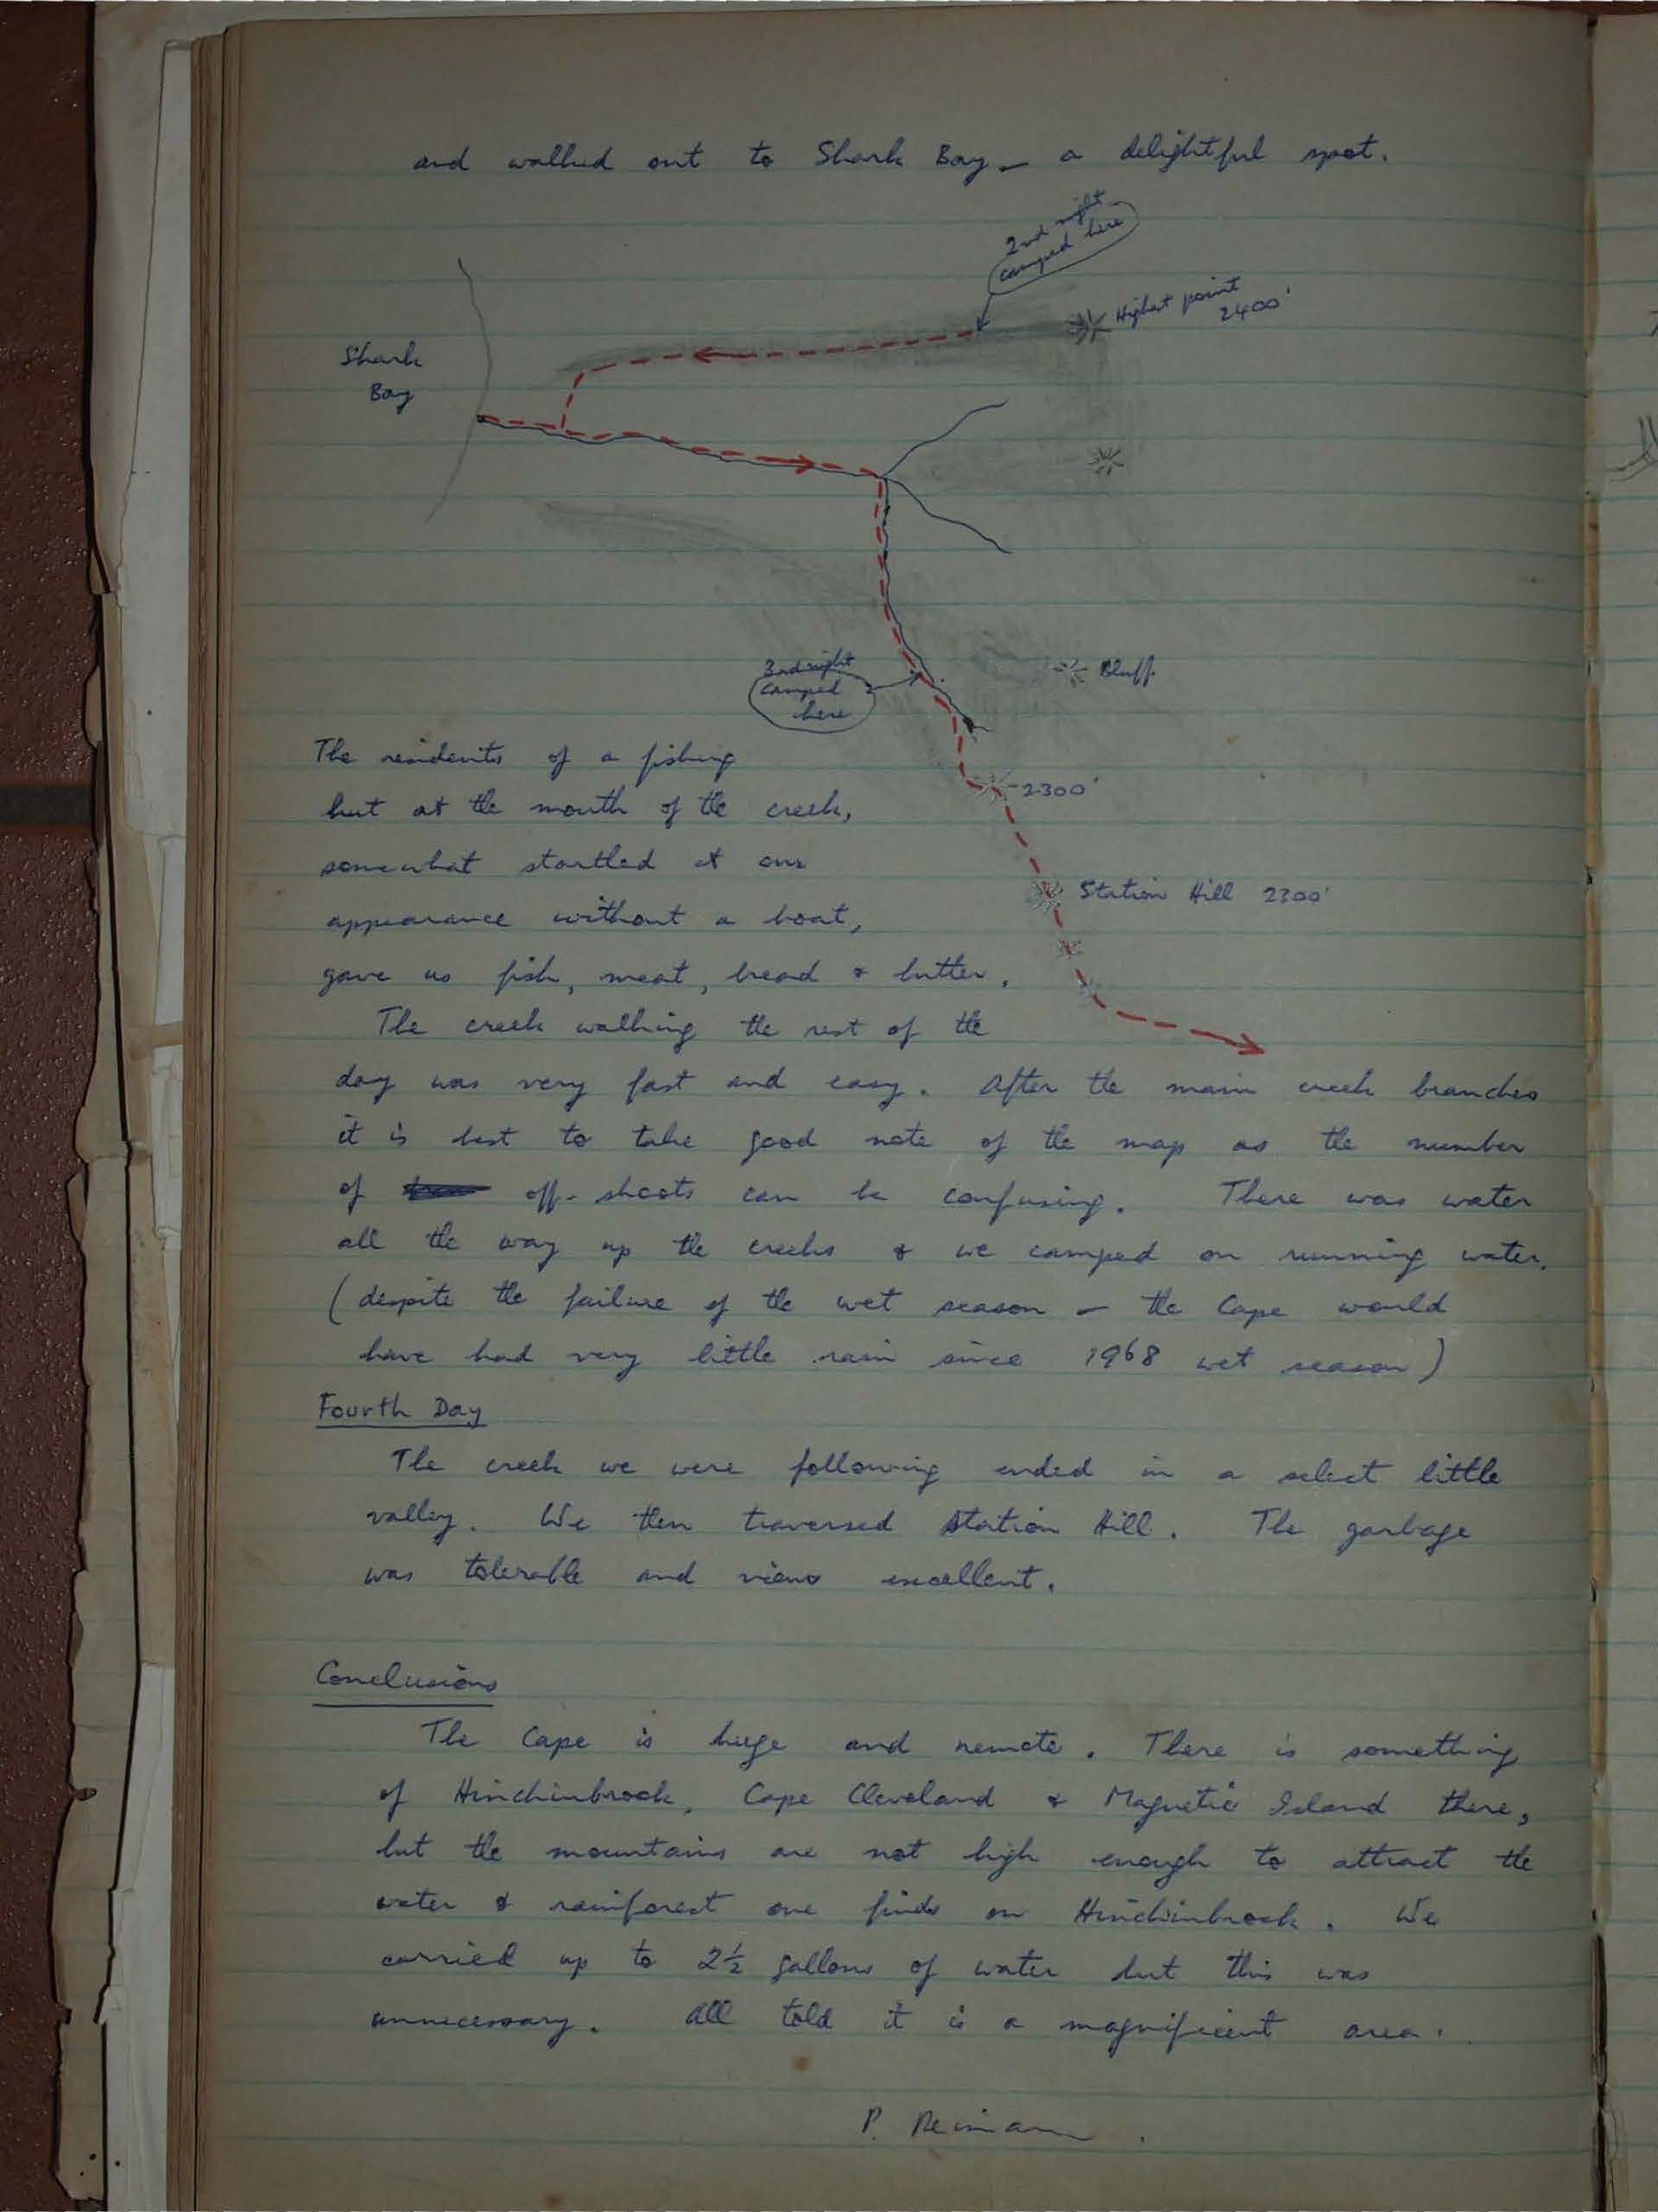 and walked out to Shark Bay - a delightful spot.
2nd night
camped here
Highest point
2400'
Shark
Bay
3rd night
camped
here
Bluff
The residents of a fishing
hut at the mouth of the creek,
2300'
somewhat startled at our
appearance without a boat,
Station Hill 2300'
gave us fish, meat, bread & butter.
The creek walking the rest of the
day was very fast and easy. After the main creek branches
it is best to take good note of the map as the number
of off-shoots can be confusing. There was water
all the way up the creeks & we camped on running water.
(despite the failure of the wet season - the Cape would
have had very little rain since 1968 wet season)
Fourth Day
The creek we were following ended in a select little
valley. We then traversed Station Hill. The garbage
was tolerable and views excellent.
Conclusions
The Cape is huge and remote. There is something
of Hinchinbrook, Cape Cleveland & Magnetic Island there,
but the mountains are not high enough to attract the
water & rainforest one finds on Hinchinbrook. We
carried up to 2½ gallons of water but this was
unnecessary. All told it is a magnificent area.
P.